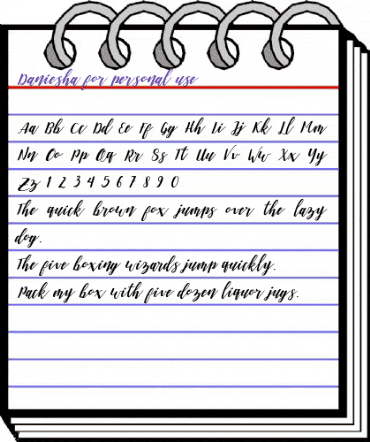 Daniesha for personal use
Aa Bb Cc Dd Ee Ff Gg Hh Ii Jj Kk Ll Mm
Nn Oo Pp Qq Rr Ss Tt Uu Vv Ww Xx Yy
Zz 1 2 3 4 5 6 7 8 9 0
The quick brown fox jumps over the lazy
dog.
The five boxing wizards jump quickly.
Pack my box with five dozen liquor jugs.